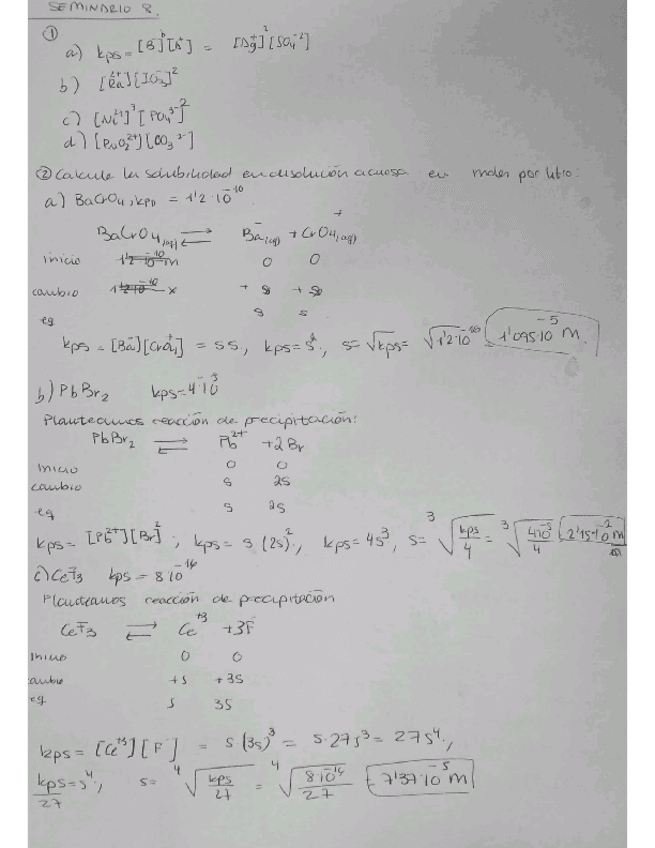 SEMINARIO 8.
①
a) kps = [B]^b [A^+] = [Ag^+]^2 [SO4^-2]
b) [Ra^2+][IO3^-]^2
c) [Ni^2+]^3 [PO4^3-]^2
d) [PuO2^2+][CO3^2-]
② Calcule la solubilidad en disolución acuosa en moles por litro:
a) BaCrO4, kps = 1'2·10^-10
BaCrO4(aq) ⇄ Ba^-(aq) + CrO4^+(aq)
inicio 0 0
cambio x +s +s
eq s s
kps = [Ba^-][CrO4^+] = s s, kps = s^2, s = √kps = √1'2·10^-10 1'095·10^-5 M.
b) PbBr2 kps = 4·10^-5
Planteamos reacción de precipitación:
PbBr2 ⇄ Pb^2+ + 2Br^-
inicio 0 0
cambio s 2s
eq s 2s
kps = [Pb^2+][Br^-]^2; kps = s (2s)^2, kps = 4s^3, s = ∛(kps/4) = ∛(4·10^-5/4) 2'15·10^-2 M
c) CeF3 kps = 8·10^-16
Planteamos reacción de precipitación
CeF3 ⇄ Ce^+3 + 3F^-
inicio 0 0
cambio +s +3s
eq s 3s
kps = [Ce^+3][F^-] = s (3s)^3 = s·27s^3 = 27s^4.,
kps/27 = s^4, s = ∜(kps/27) = ∜(8·10^-16/27) = 7'37·10^-5 M